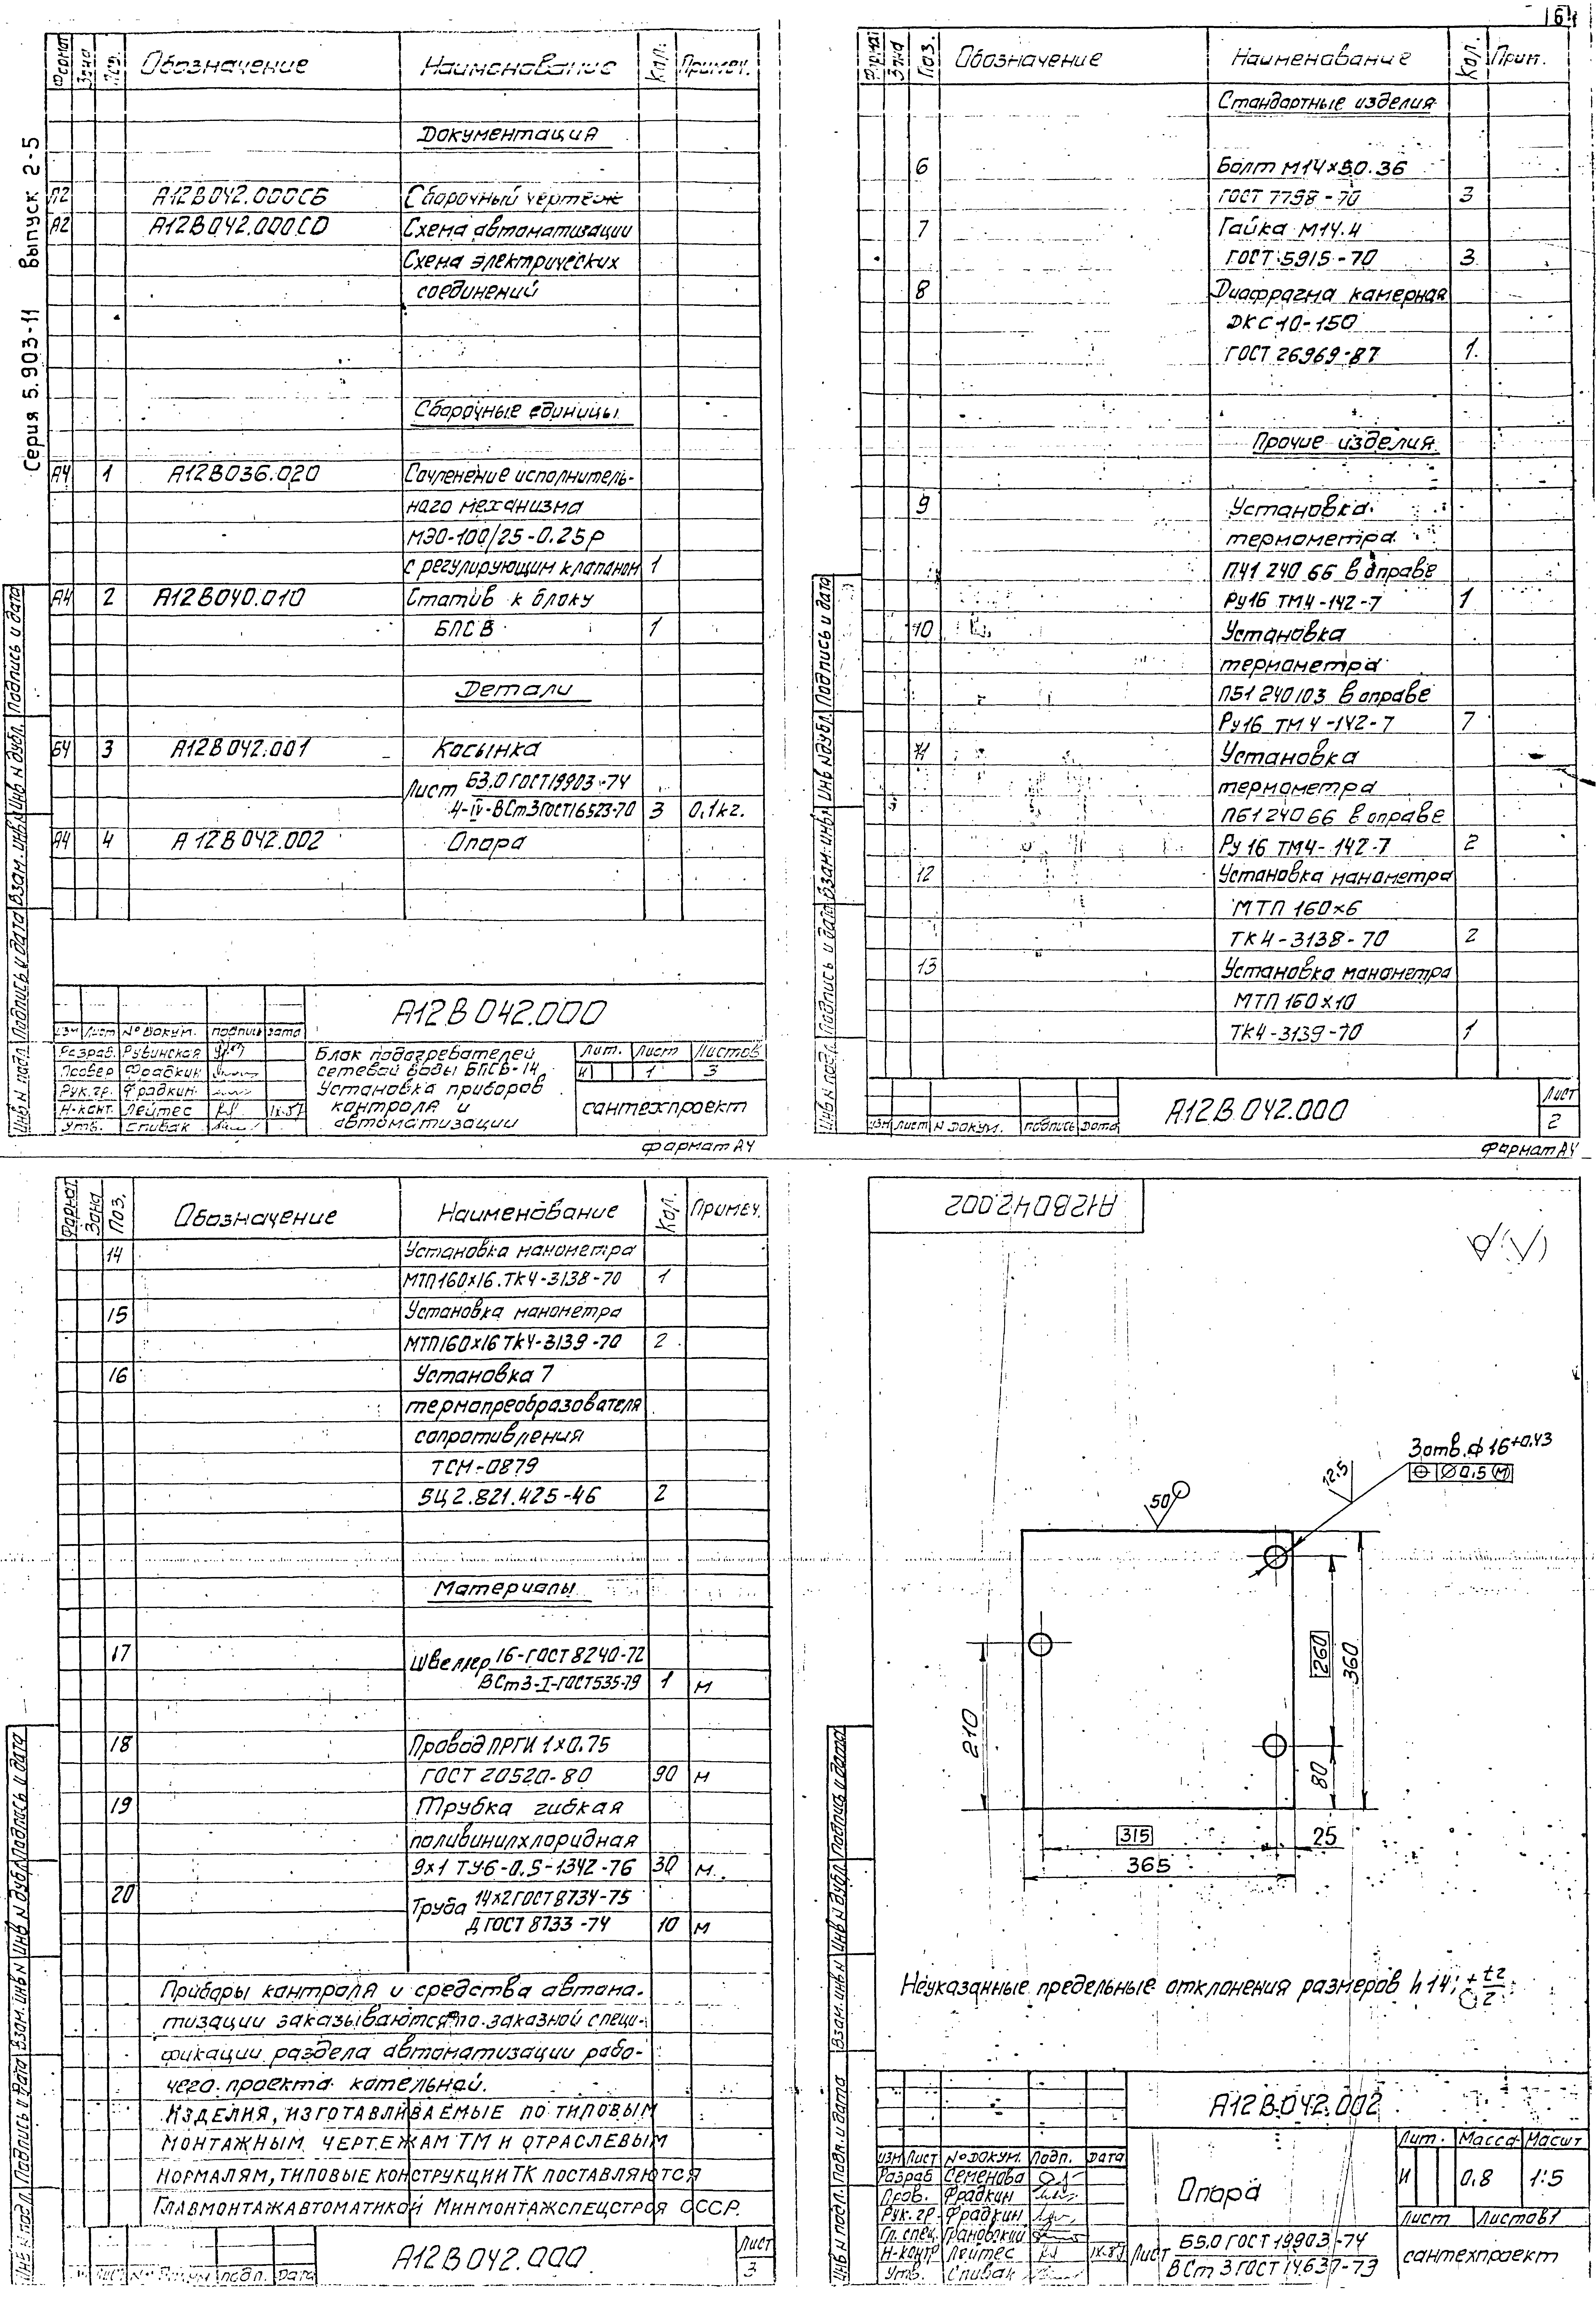 Серия 5.903-11 Выпуск 2-5
Формат Зона Поз. Обозначение Наименование Кол. Примеч.
Документация
А2 А12В042.000СБ Сборочный чертеж
А2 А12В042.000СО Схема автоматизации
Схема электрических
соединений
Сборочные единицы
А4 1 А12В036.020 Сочленение исполнитель-
ного механизма
МЭО-100/25-0.25Р
с регулирующим клапаном 1
А4 2 А12В040.010 Статив к блоку
БПСВ 1
Детали
БЧ 3 А12В042.001 Косынка
Лист Б3.0 ГОСТ19903-74
4-IV-ВСт3ГОСТ16523-70 3 0,1кг.
А4 4 А12В042.002 Опора
А12В042.000
Изм Лист № докум. подпись дата
Разраб. Рубинская
Провер Фрадкин
Рук.гр. Фрадкин
Н-конт. Лейтес
Утв. Спивак
Блок подогревателей
сетевой воды БПСВ-14
Установка приборов
контроля и
автоматизации
Лит. Лист Листов
И 1 3
сантехпроект
формат А4
Инв N подл. Подпись и дата Взам. инв N Инв N дубл. Подпись и дата
Формат Зона Поз. Обозначение Наименование Кол. Прим.
Стандартные изделия
6 Болт М14х50.36
ГОСТ 7798-70 3
7 Гайка М14.4
ГОСТ 5915-70 3
8 Диафрагма камерная
ДКС 10-150
ГОСТ 26969-87 1
Прочие изделия
9 Установка
термометра
П41 240 66 в оправе
Ру16 ТМ4-142-7 1
10 Установка
термометра
П51 240103 в оправе
Ру16 ТМ4-142-7 7
11 Установка
термометра
П61 240 66 в оправе
Ру 16 ТМ4-142-7 2
12 Установка манометра
МТП 160х6
ТК4-3138-70 2
13 Установка манометра
МТП 160х10
ТК4-3139-70 1
Изм Лист N докум. подпись Дата
А12В.042.000
Лист
2
Формат А4
Инв N подл. Подпись и дата Взам. инв N Инв N дубл. Подпись и дата
Формат Зона Поз. Обозначение Наименование Кол. Примеч.
14 Установка манометра
МТП160х16.ТК4-3138-70 1
15 Установка манометра
МТП160х16 ТК4-3139-70 2
16 Установка 7
термопреобразователя
сопротивления
ТСМ-0879
5Ц2.821.425-46 2
Материалы
17 Швеллер 16-ГОСТ 8240-72
ВСт3-I-ГОСТ535-79 1 м
18 Провод ПРГИ 1х0.75
ГОСТ 20520-80 90 м
19 Трубка гибкая
поливинилхлоридная
9х1 ТУ6-0.5-1342-76 30 м.
20 Труба 14х2ГОСТ8734-75
Д ГОСТ 8733-74 10 м
Приборы контроля и средства автома-
тизации заказываются по заказной специ-
фикации раздела автоматизации рабо-
чего проекта котельной.
Изделия, изготавливаемые по типовым
монтажным чертежам ТМ и отраслевым
нормалям, типовые конструкции ТК поставляются
Главмонтажавтоматикой Минмонтажспецстроя СССР.
А12В042.000
Лист
3
Инв N подл. Подпись и дата Взам. инв N Инв N дубл. Подпись и дата
А12В042.002
3 отв. ф 16+0,43
⌀ 0,5 (М)
12.5
50
260
360
210
80
315
25
365
Неуказанные предельные отклонения размеров h14; ± t2/2
А12В.042.002
Изм Лист № докум. Подп. Дата
Разраб Семенова
Пров. Фрадкин
Рук.гр. Фрадкин
Гл. спец. Грановский
Н-контр Лейтес
Утв. Спивак
Опора
Лит. Масса Масшт
И 0,8 1:5
Лист Листов 1
Лист Б5.0 ГОСТ 19903-74
ВСт 3 ГОСТ 14637-79
сантехпроект
Инв N подл. Подп. и дата Взам. инв N Инв N дубл. Подпись и дата